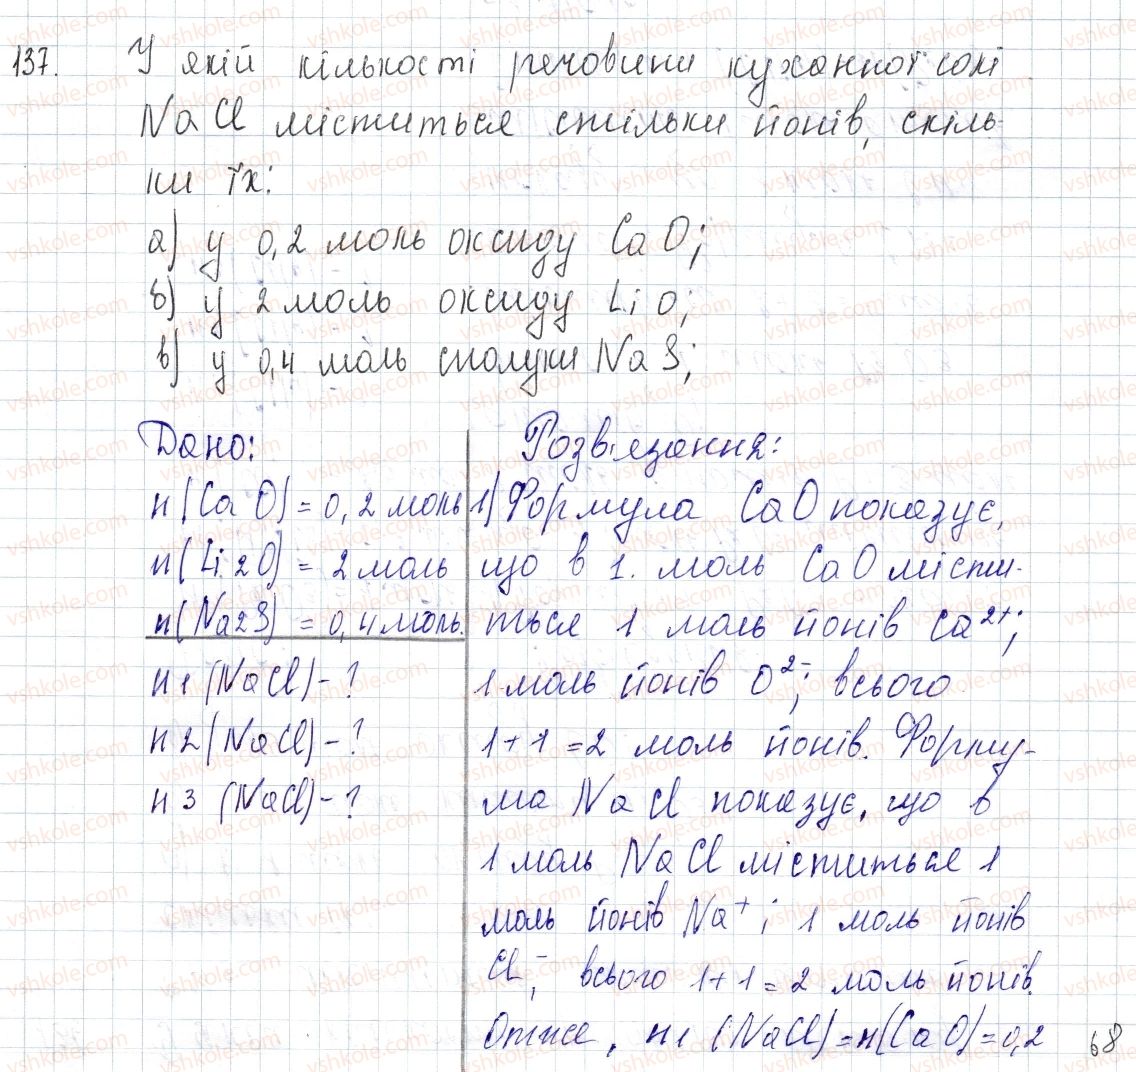 137. У якій кількості речовини кухонної солі
NaCl міститься стільки йонів, скіль-
ки їх:
а) у 0,2 моль оксиду CaO;
б) у 2 моль оксиду LiO;
в) у 0,4 моль сполуки NaS;
Дано:
n(CaO) = 0,2 моль
n(Li2O) = 2 моль
n(Na2S) = 0,4 моль.
n1(NaCl) - ?
n2(NaCl) - ?
n3(NaCl) - ?
Розв'язання:
1) Формула CaO показує,
що в 1. моль CaO місти-
ться 1 моль йонів Ca²⁺;
1 моль йонів O²⁻; всього
1+1=2 моль йонів. Форму-
ла NaCl показує, що в
1 моль NaCl міститься 1
моль йонів Na⁺; 1 моль йонів
Cl⁻; всього 1+1=2 моль йонів.
Отже, n1(NaCl)=n(CaO)=0,2
68
vshkole.com